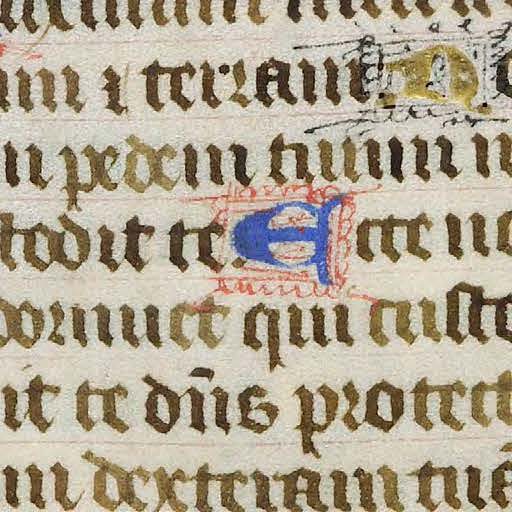 um ⁊ terram N
pedem tuum
todit te. Ecce
dormiet qui custo
it te dñs protect
dexteram tuã